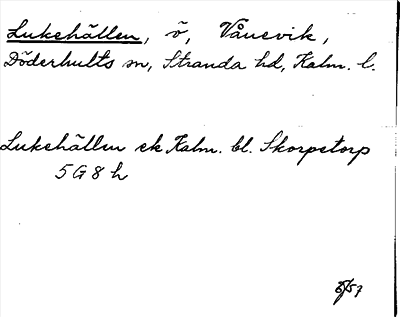 Lukehällen, ö, Vånevik,
Döderhults sn, Stranda hd, Kalm. l.
Lukehällen ek Kalm. bl. Skorpetorp
5 G 8 h